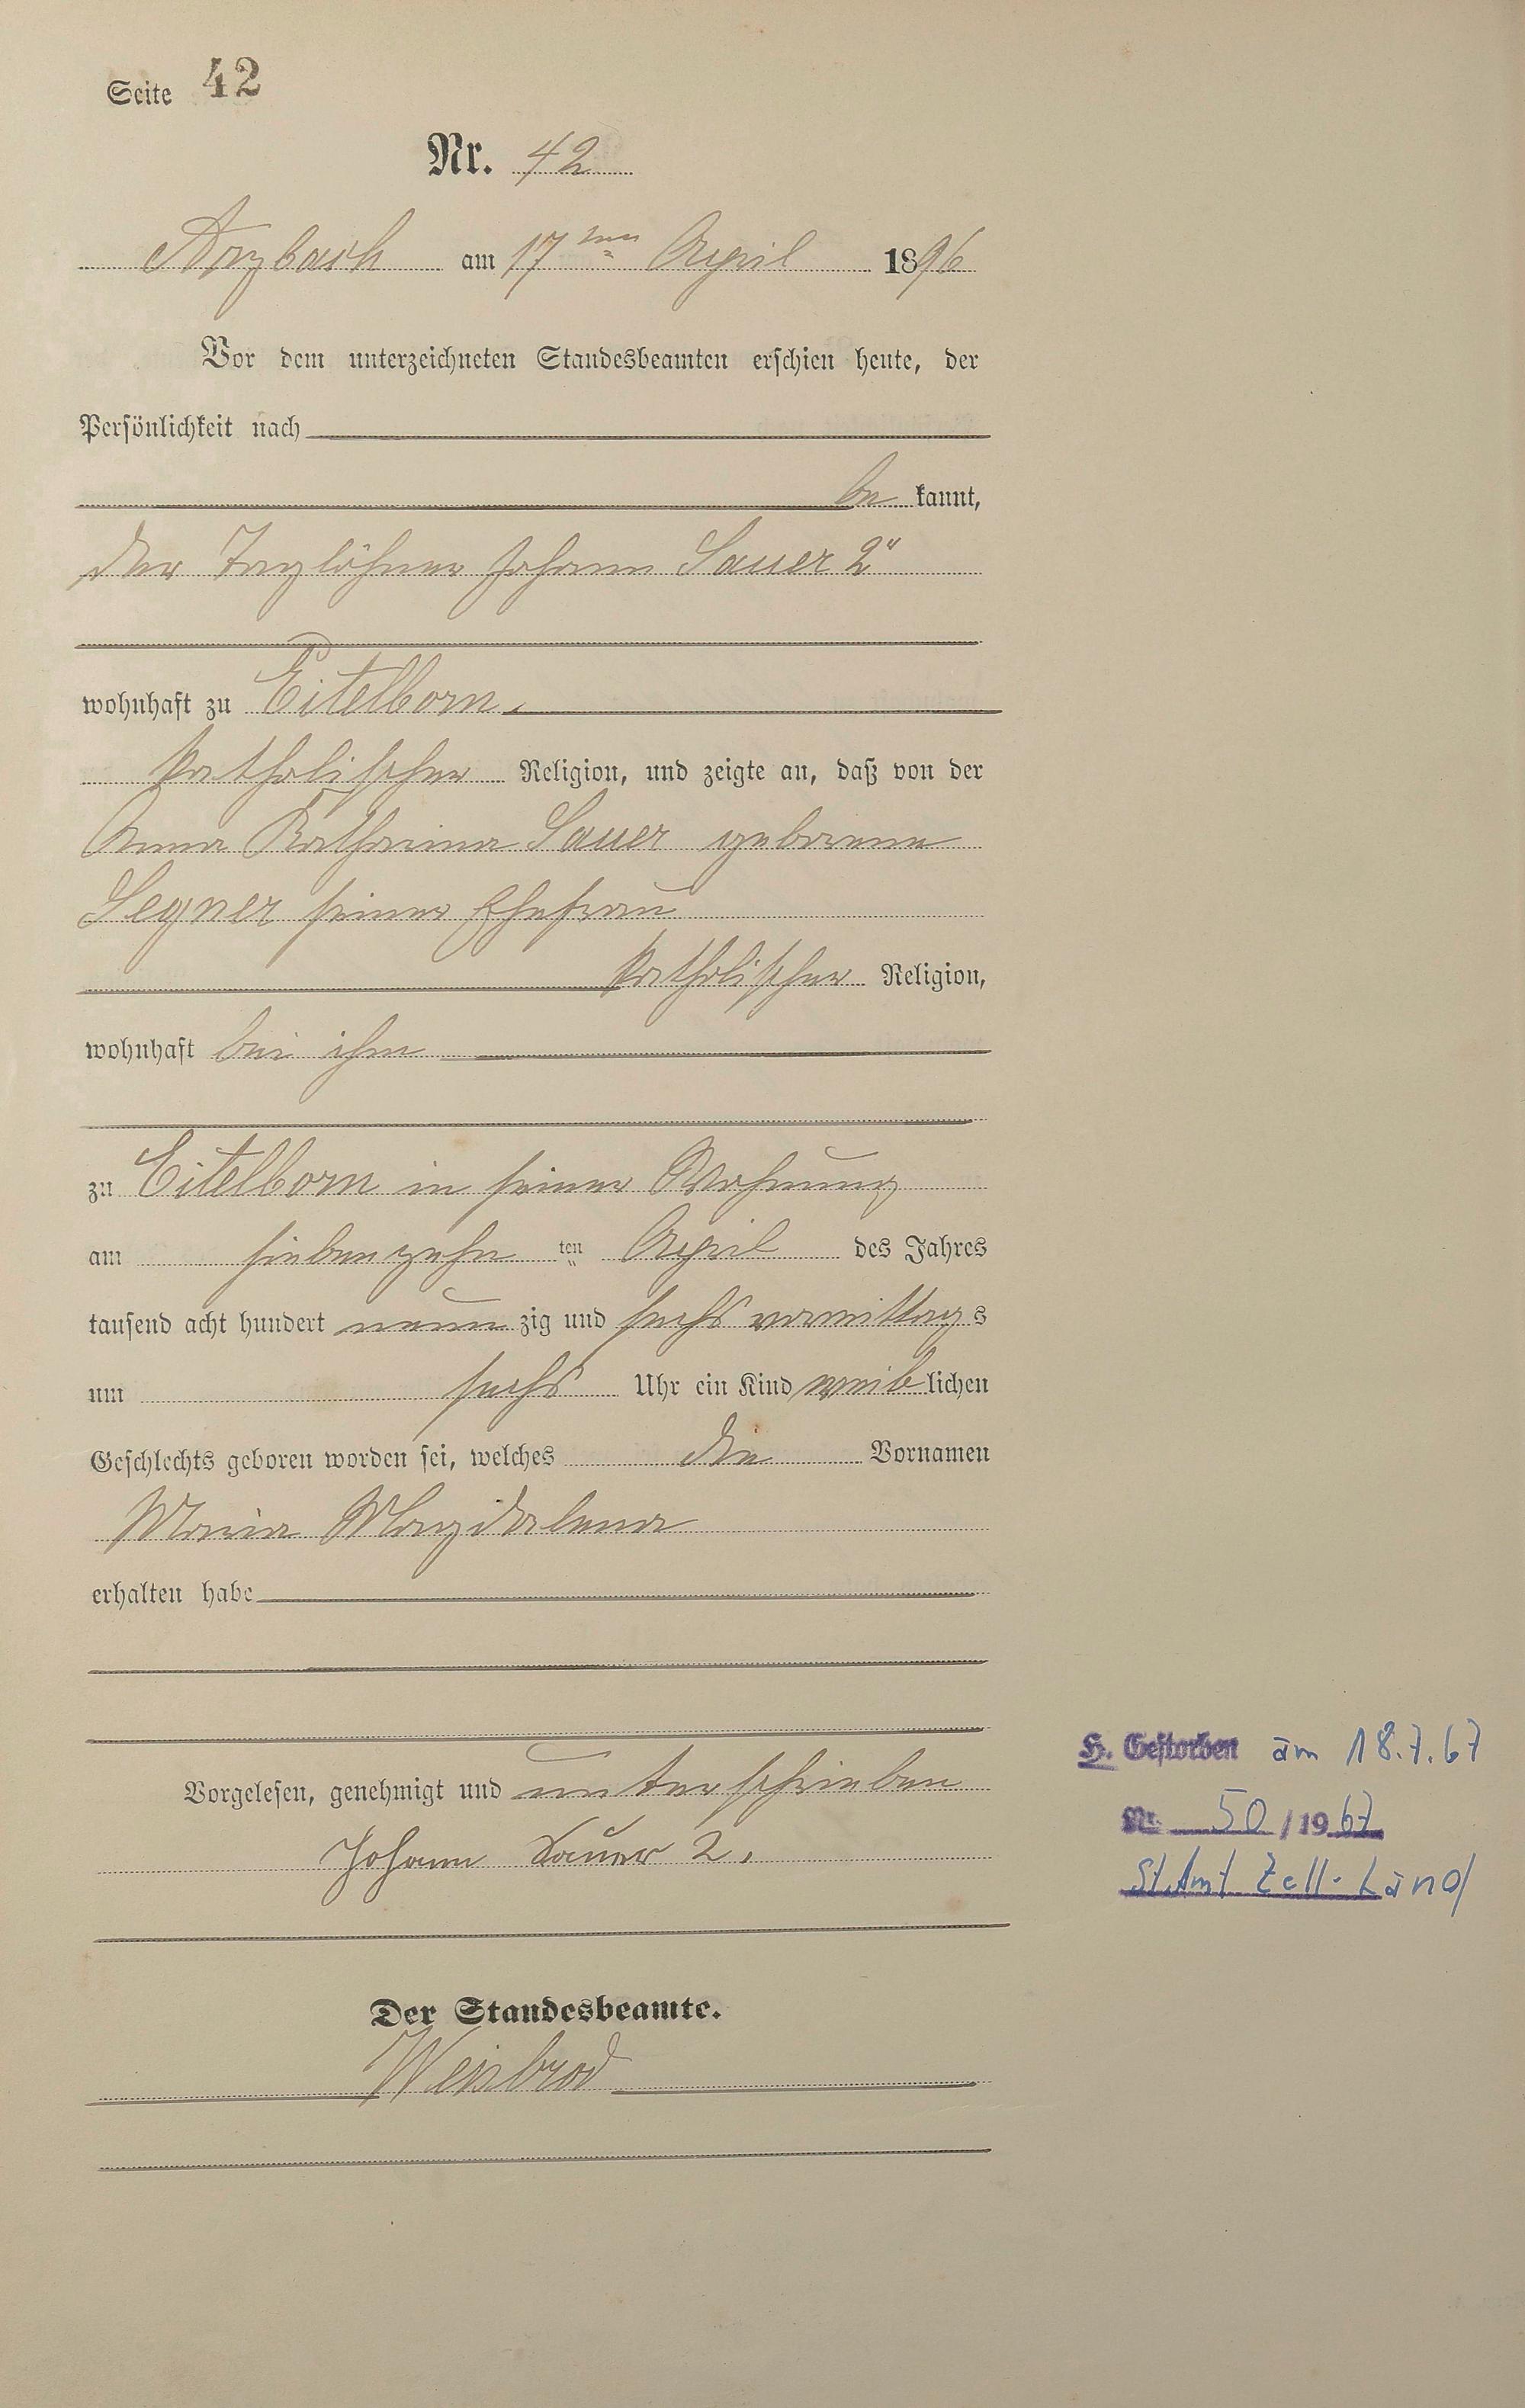 Seite 42
Nr. 42
Arzbach am 17ten April 1896
Vor dem unterzeichneten Standesbeamten erschien heute, der
Persönlichkeit nach
be kannt,
der Taglöhner Johann Sauer 2"
wohnhaft zu Eitelborn,
katholischer Religion, und zeigte an, daß von der
Anna Katharina Sauer geborene
Segner seiner Ehefrau
katholischer Religion,
wohnhaft bei ihm
zu Eitelborn in seiner Wohnung
am siebenzehn ten April des Jahres
tausend acht hundert neun zig und sechs vormittags
um sechs Uhr ein Kind weiblichen
Geschlechts geboren worden sei, welches die Vornamen
Maria Magdalena
erhalten habe
Vorgelesen, genehmigt und unterschrieben
Johann Sauer 2.
H. Gestorben am 18.7.67
Nr. 50/1967
St.Amt Zell-Land
Der Standesbeamte.
Weisbrod